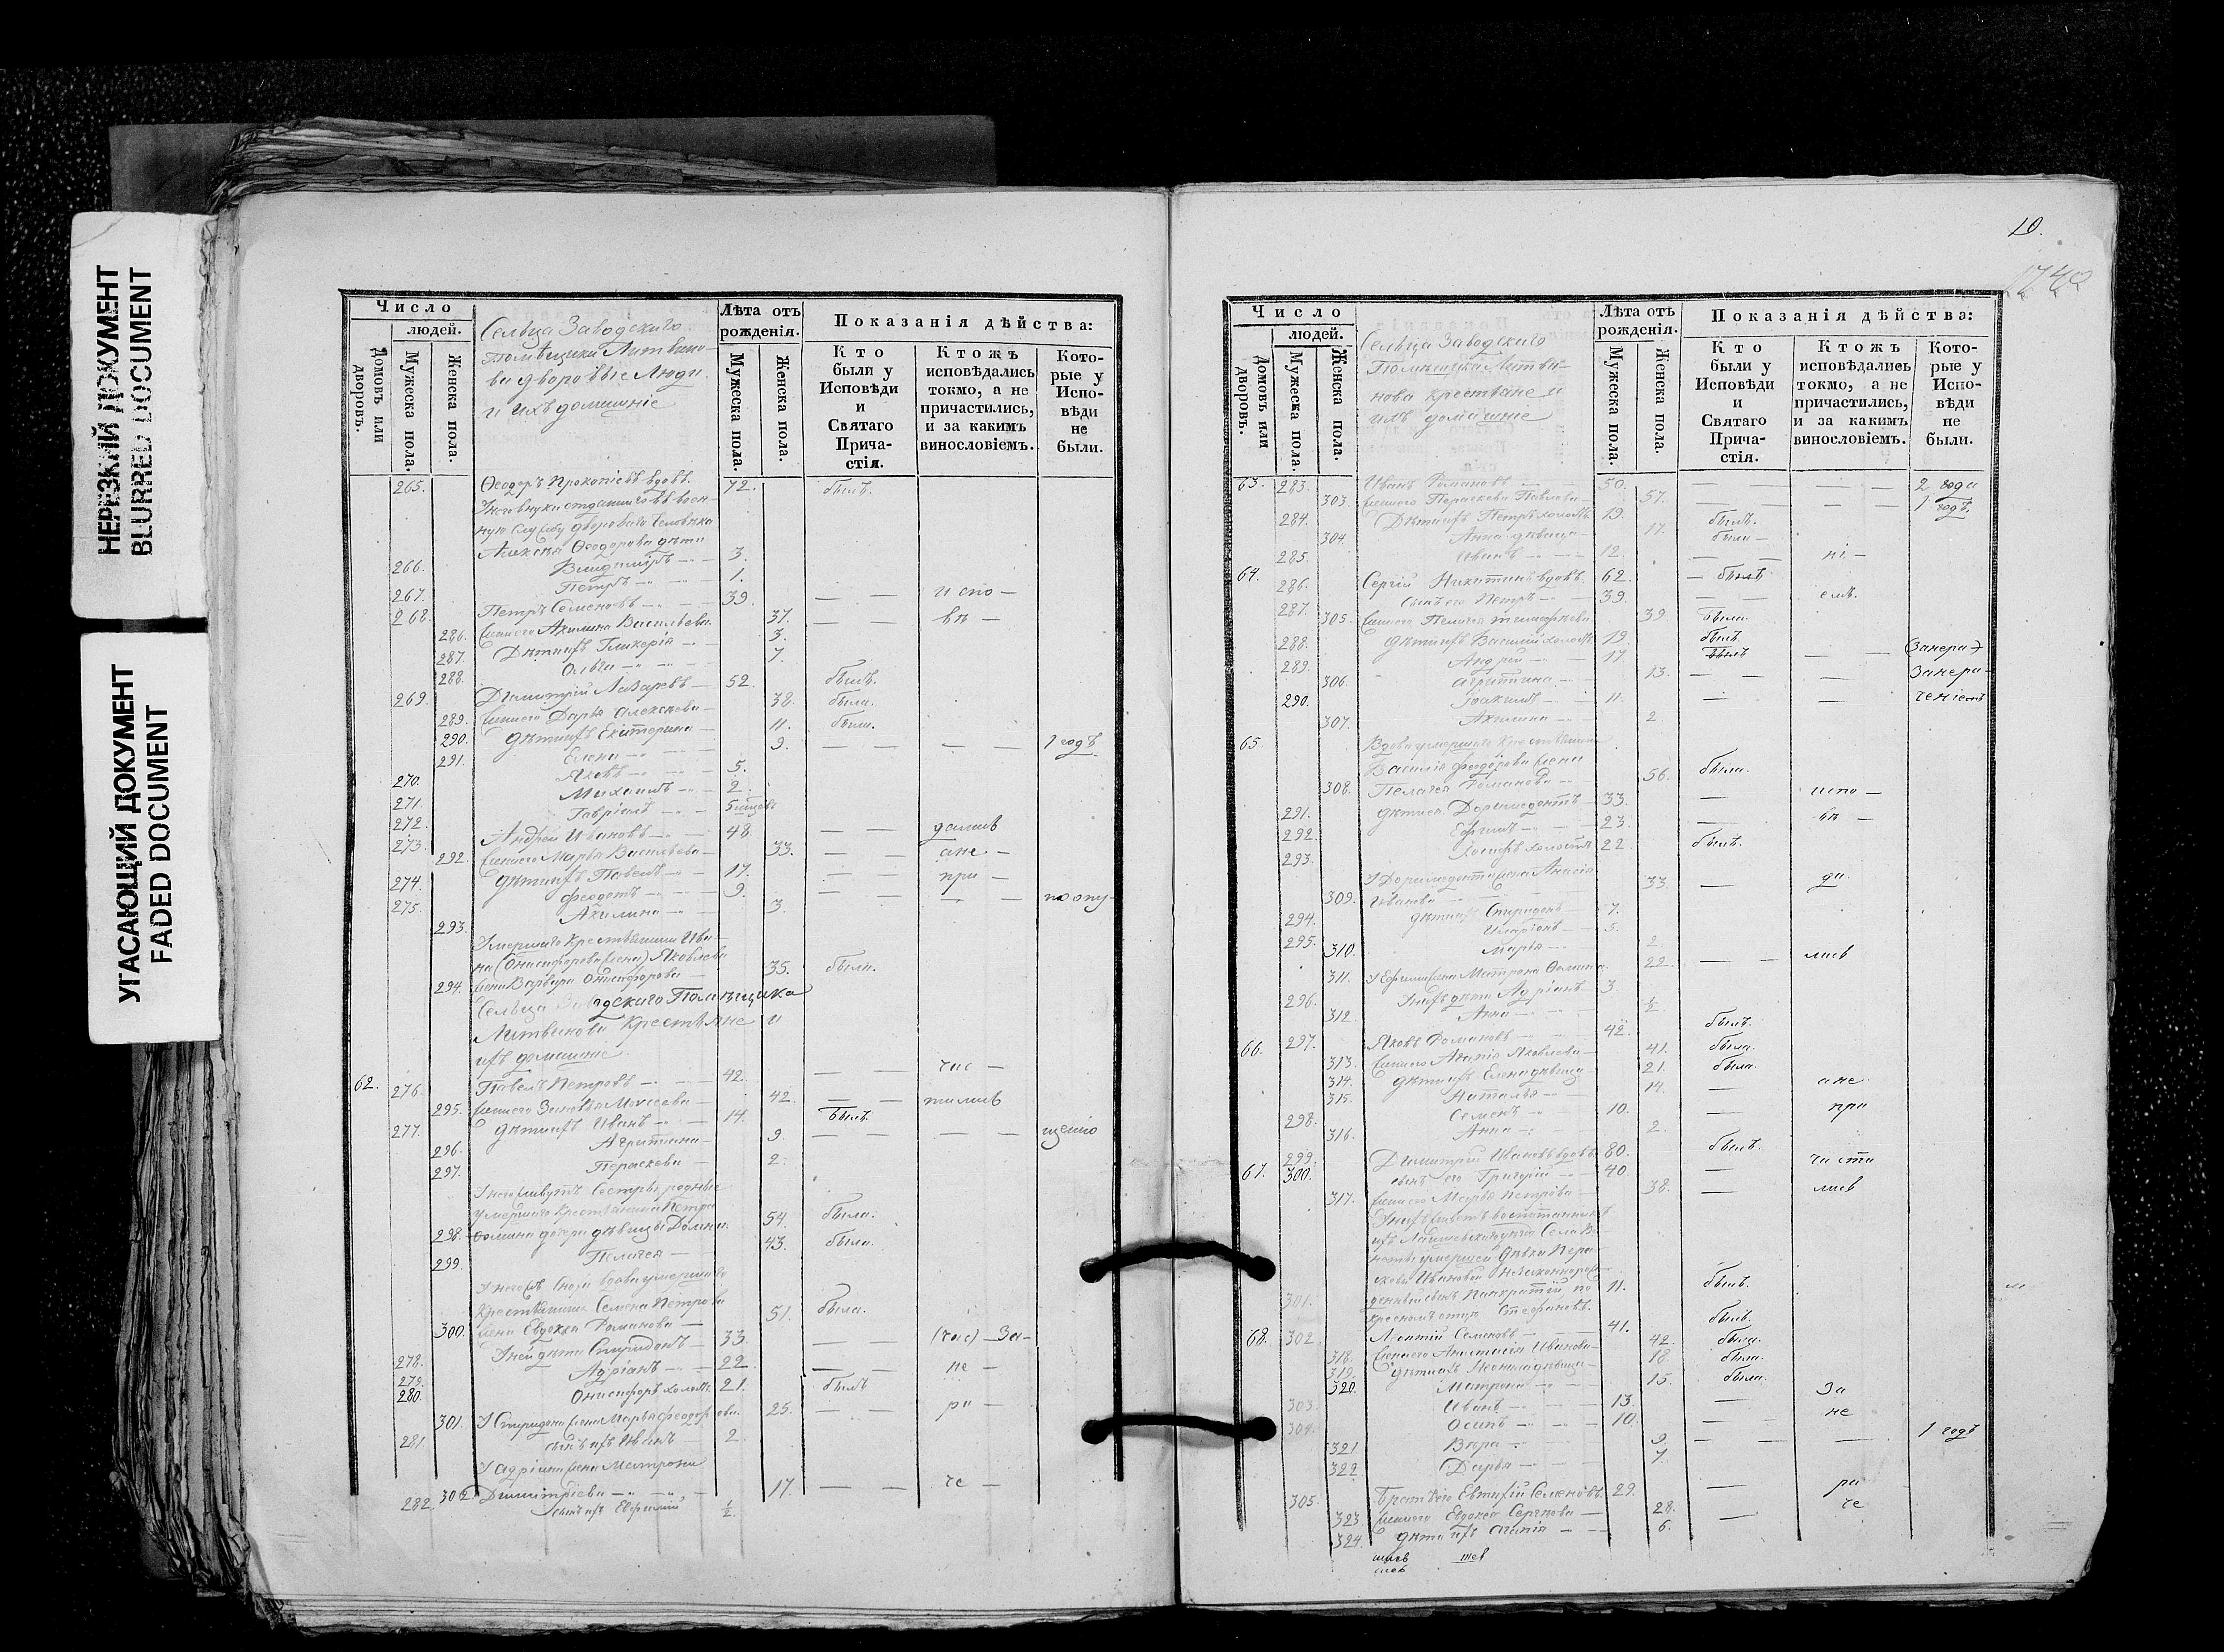 НЕРЕЗКИЙ ДОКУМЕНТ
BLURRED DOCUMENT
УГАСАЮЩИЙ ДОКУМЕНТ
FADED DOCUMENT
Число
людей.
Домовъ или дворовъ.
Мужеска пола.
Женска пола.
Сельца Заводскаго
Помѣщика Литвино-
ва дворовые Люди
и ихъ домашніе
Лѣта отъ рожденія.
Мужеска пола.
Женска пола.
Показанія дѣйства:
Кто были у Исповѣди и Святаго Прича- стія.
Ктожъ исповѣдались токмо, а не причастились, и за какимъ винословіемъ.
Кото- рые у Испо- вѣди не были.
265. Ѳеодоръ Прокопіевъ вдовъ. 72. былъ.
Алексѣя Ѳеодорова дѣти
266. Владиміръ 3.
267. Петръ 1.
268. Петръ Семеновъ 39. — — испо —
286. Жена его Акилина Васильева 37. — — вѣ —
287. Дѣти ихъ Гликерія 3.
288. Ольга 7.
269. Димитрій Лазаревъ 52. былъ.
289. Жена его Дарья Алексѣева 38. была.
290. Дѣти ихъ Екатерина 11. была.
291. Елена 9. — — — — 1 годъ
270. Яковъ 5.
271. Михаилъ 2.
272. Гавріилъ 5 мѣцевъ
273. Андрей Ивановъ 48. — — дались
292. Жена его Марья Васильева 33. — — а не —
274. Дѣти ихъ Павелъ 17. — — при —
275. Ѳеодотъ 9. — — — — по опу-
293. Акилина 3.
Умершаго крестьянина Ива-
на Онисифорова жена Яковлева
294. Варвара Онисифорова 35. была.
Сельца Заводскаго Помѣщика
Литвинова Крестьяне и
ихъ домашніе
62. 276. Павелъ Петровъ 42. — — час —
295. Жена его Зиновья Моисеева 42. — — тились
277. Дѣти ихъ Иванъ 14. былъ.
296. Агрипина 9. — — — — щенію
297. Параскева 2.
У него живутъ Сестры родныя
умершаго крестьянина Петра
298. Ѳомина дочери дѣвицы Домна 54. была.
299. Пелагея 43. была.
Крестьянина Семена Петрова
300. жена Евдокія Романова 51. была.
278. У ней дѣти Спиридонъ 33. — — (час) —За-
279. Адріанъ 22. — — не —
280. Онисифоръ холостъ 21. былъ
301. У Спиридона жена Марья Ѳеодорова. 25. — — ра —
281. сынъ ихъ Иванъ 2.
У Адріана жена Матрона
302. Димитріева 17. — — че —
282. сынъ ихъ Евфимій ½.
10.
1740
Число
людей.
Домовъ или дворовъ.
Мужеска пола.
Женска пола.
Сельца Заводскаго
Помѣщика Литви-
нова крестьяне и
ихъ домашніе
Лѣта отъ рожденія.
Мужеска пола.
Женска пола.
Показанія дѣйства:
Кто были у Исповѣди и Святаго Прича- стія.
Ктожъ исповѣдались токмо, а не причастились, и за какимъ винословіемъ.
Кото- рые у Испо- вѣди не были.
63. 283. Иванъ Романовъ 50. — — — 2 года
303. Жена его Параскева Павлова 57. — — — 1 годъ.
284. Дѣти ихъ Петръ холостъ 19. былъ.
304. Анна дѣвица 17. была —
285. Иванъ 12. — — ні —
64. 286. Сергій Никитинъ вдовъ. 62. — былъ
287. Сынъ его Петръ 39. — — емъ.
305. Жена его Пелагея Тимоѳеева 39 была.
288. Дѣти ихъ Василій холостъ 19. былъ.
289. Андрей 17. былъ — — (Занера-)
306. Агрипина 13. — — — Занера-
290. Іоакимъ 11. — — ченіемъ
307. Акилина 2.
65. Вдова умершаго крестьянина
Василія Ѳеодорова жена
308. Пелагея Романова 56. была.
291. дѣти ея Доримедонтъ 33. — испо —
292. Ефимъ 23. — вѣ —
293. Іосифъ холостъ 22. былъ.
У Доримедонта жена Анасія
309. Иванова 33. — да.
294. дѣти ихъ Спиридонъ 7.
295. Иларіонъ 5.
310. Марья 2.
311. У Ефима жена Матрона Ѳомина 22. — — лись
296. У нихъ дѣти Адріанъ 3.
312. Анна ½.
66. 297. Яковъ Романовъ 42. былъ.
313. Жена его Агапія Яковлева 41. была.
314. Дѣти ихъ Елена дѣвица 21. была.
315. Наталья 14. — а не
298. Семенъ 10. — при
316. Анна 2.
299. Димитрій Ивановъ вдовъ 80. былъ.
67. 300. сынъ его Григорій 40. — части
317. Жена его Марья Петрова 38. — лись
301. денный сынъ Панкратій, по 11. былъ.
кресномъ отцу Стефановъ.
68. 302. Леонтій Семеновъ 41. былъ.
318. Жена его Анастасія Иванова 42. была.
319. дѣти ихъ Неонила дѣвица 18. была.
320. Матрона 15. была.
303. Иванъ 13. — За
304. Осипъ 10. — — не
321. Вѣра 9. — — 1 годъ
322. Дарья 7.
305. Братъ его Евтихій Семеновъ. 29. — ра
323. Жена его Евдокія Сергѣева 28. — че
324. дѣти ихъ Агапія 6.